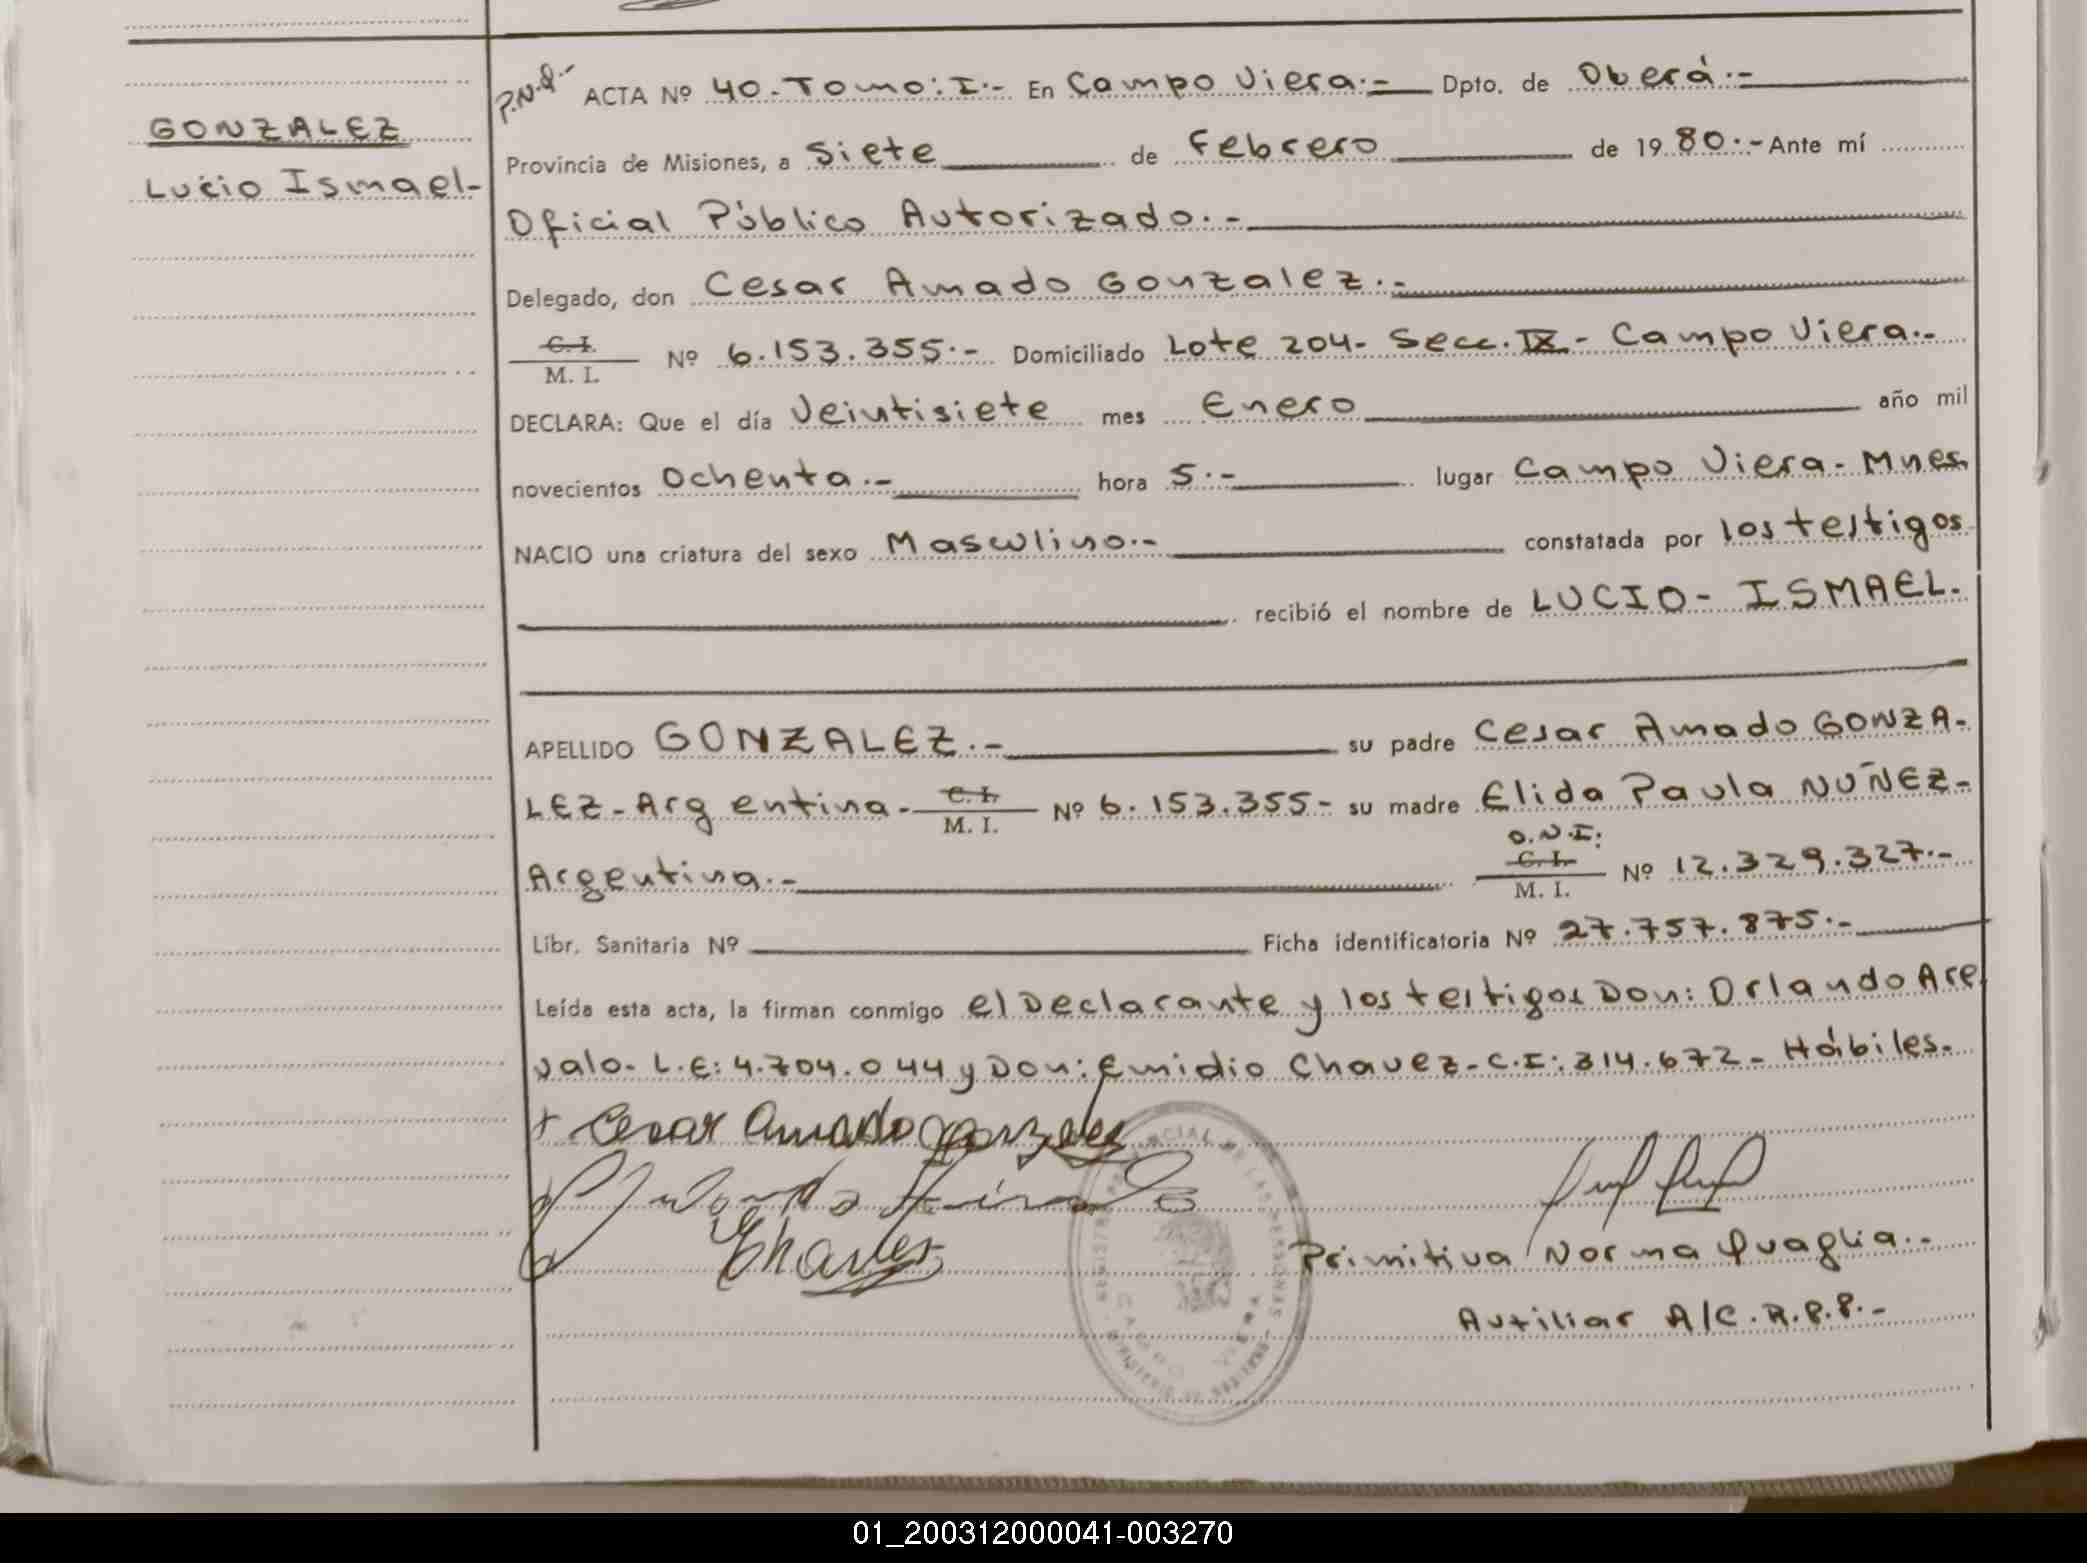 GONZALEZ
Lucio Ismael-
P.N.Q.-
ACTA Nº 40.-Tomo: I.- En Campo Viera.- Dpto. de Oberá.-
Provincia de Misiones, a Siete de Febrero de 1980.- Ante mí
Oficial Público Autorizado.-
Delegado, don Cesar Amado Gonzalez.-
C. I.
M. I. Nº 6.153.355.- Domiciliado Lote 204- Secc. IX- Campo Viera.-
DECLARA: Que el día Veintisiete mes Enero año mil
novecientos Ochenta.- hora 5.- lugar Campo Viera- Mnes.
NACIO una criatura del sexo Masculino.- constatada por los testigos
recibió el nombre de LUCIO- ISMAEL.
APELLIDO GONZALEZ.- su padre Cesar Amado GONZA-
LEZ- Argentina.- C. I. M. I. Nº 6.153.355- su madre Elida Paula NUÑEZ-
Argentina.- D.N.I: C. I. M. I. Nº 12.329.327.-
Libr. Sanitaria Nº Ficha identificatoria Nº 27.757.875.-
Leída esta acta, la firman conmigo el Declarante y los testigos Don: Orlando Are
valo- L.E: 4.704.044 y Don: Emidio Chavez- C.I: 314.672- Hábiles.
+ Cesar Amado Gonzalez
Chavez
Primitiva Norma Quaglia.-
Auxiliar A/C. R.P.P.-
01_200312000041-003270